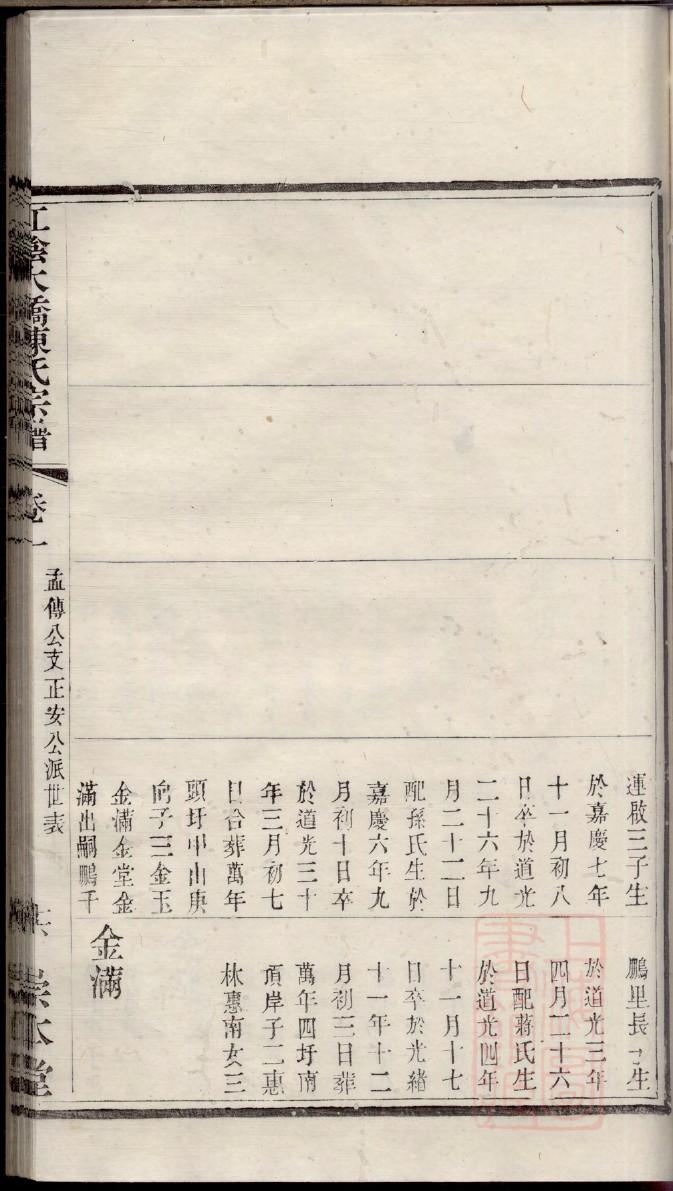 連啟三子生
於嘉慶七年
十一月初八
日卒於道光
二十六年九
月二十二日
配孫氏生於
嘉慶六年九
月初十日卒
於道光三十
年三月初七
日合葬萬年
頭圩甲山庚
向子三金玉
金滿金堂金
滿出嗣鵬千
鵬里長子生
於道光三年
四月二十六
日配蔣氏生
於道光四年
十一月十七
日卒於光緒
十一年十二
月初三日葬
萬年四圩南
頂岸子二惠
林惠南女三
金滿
江陰大橋陳氏宗譜
卷一
孟傳公支正安公派世表
宗本堂